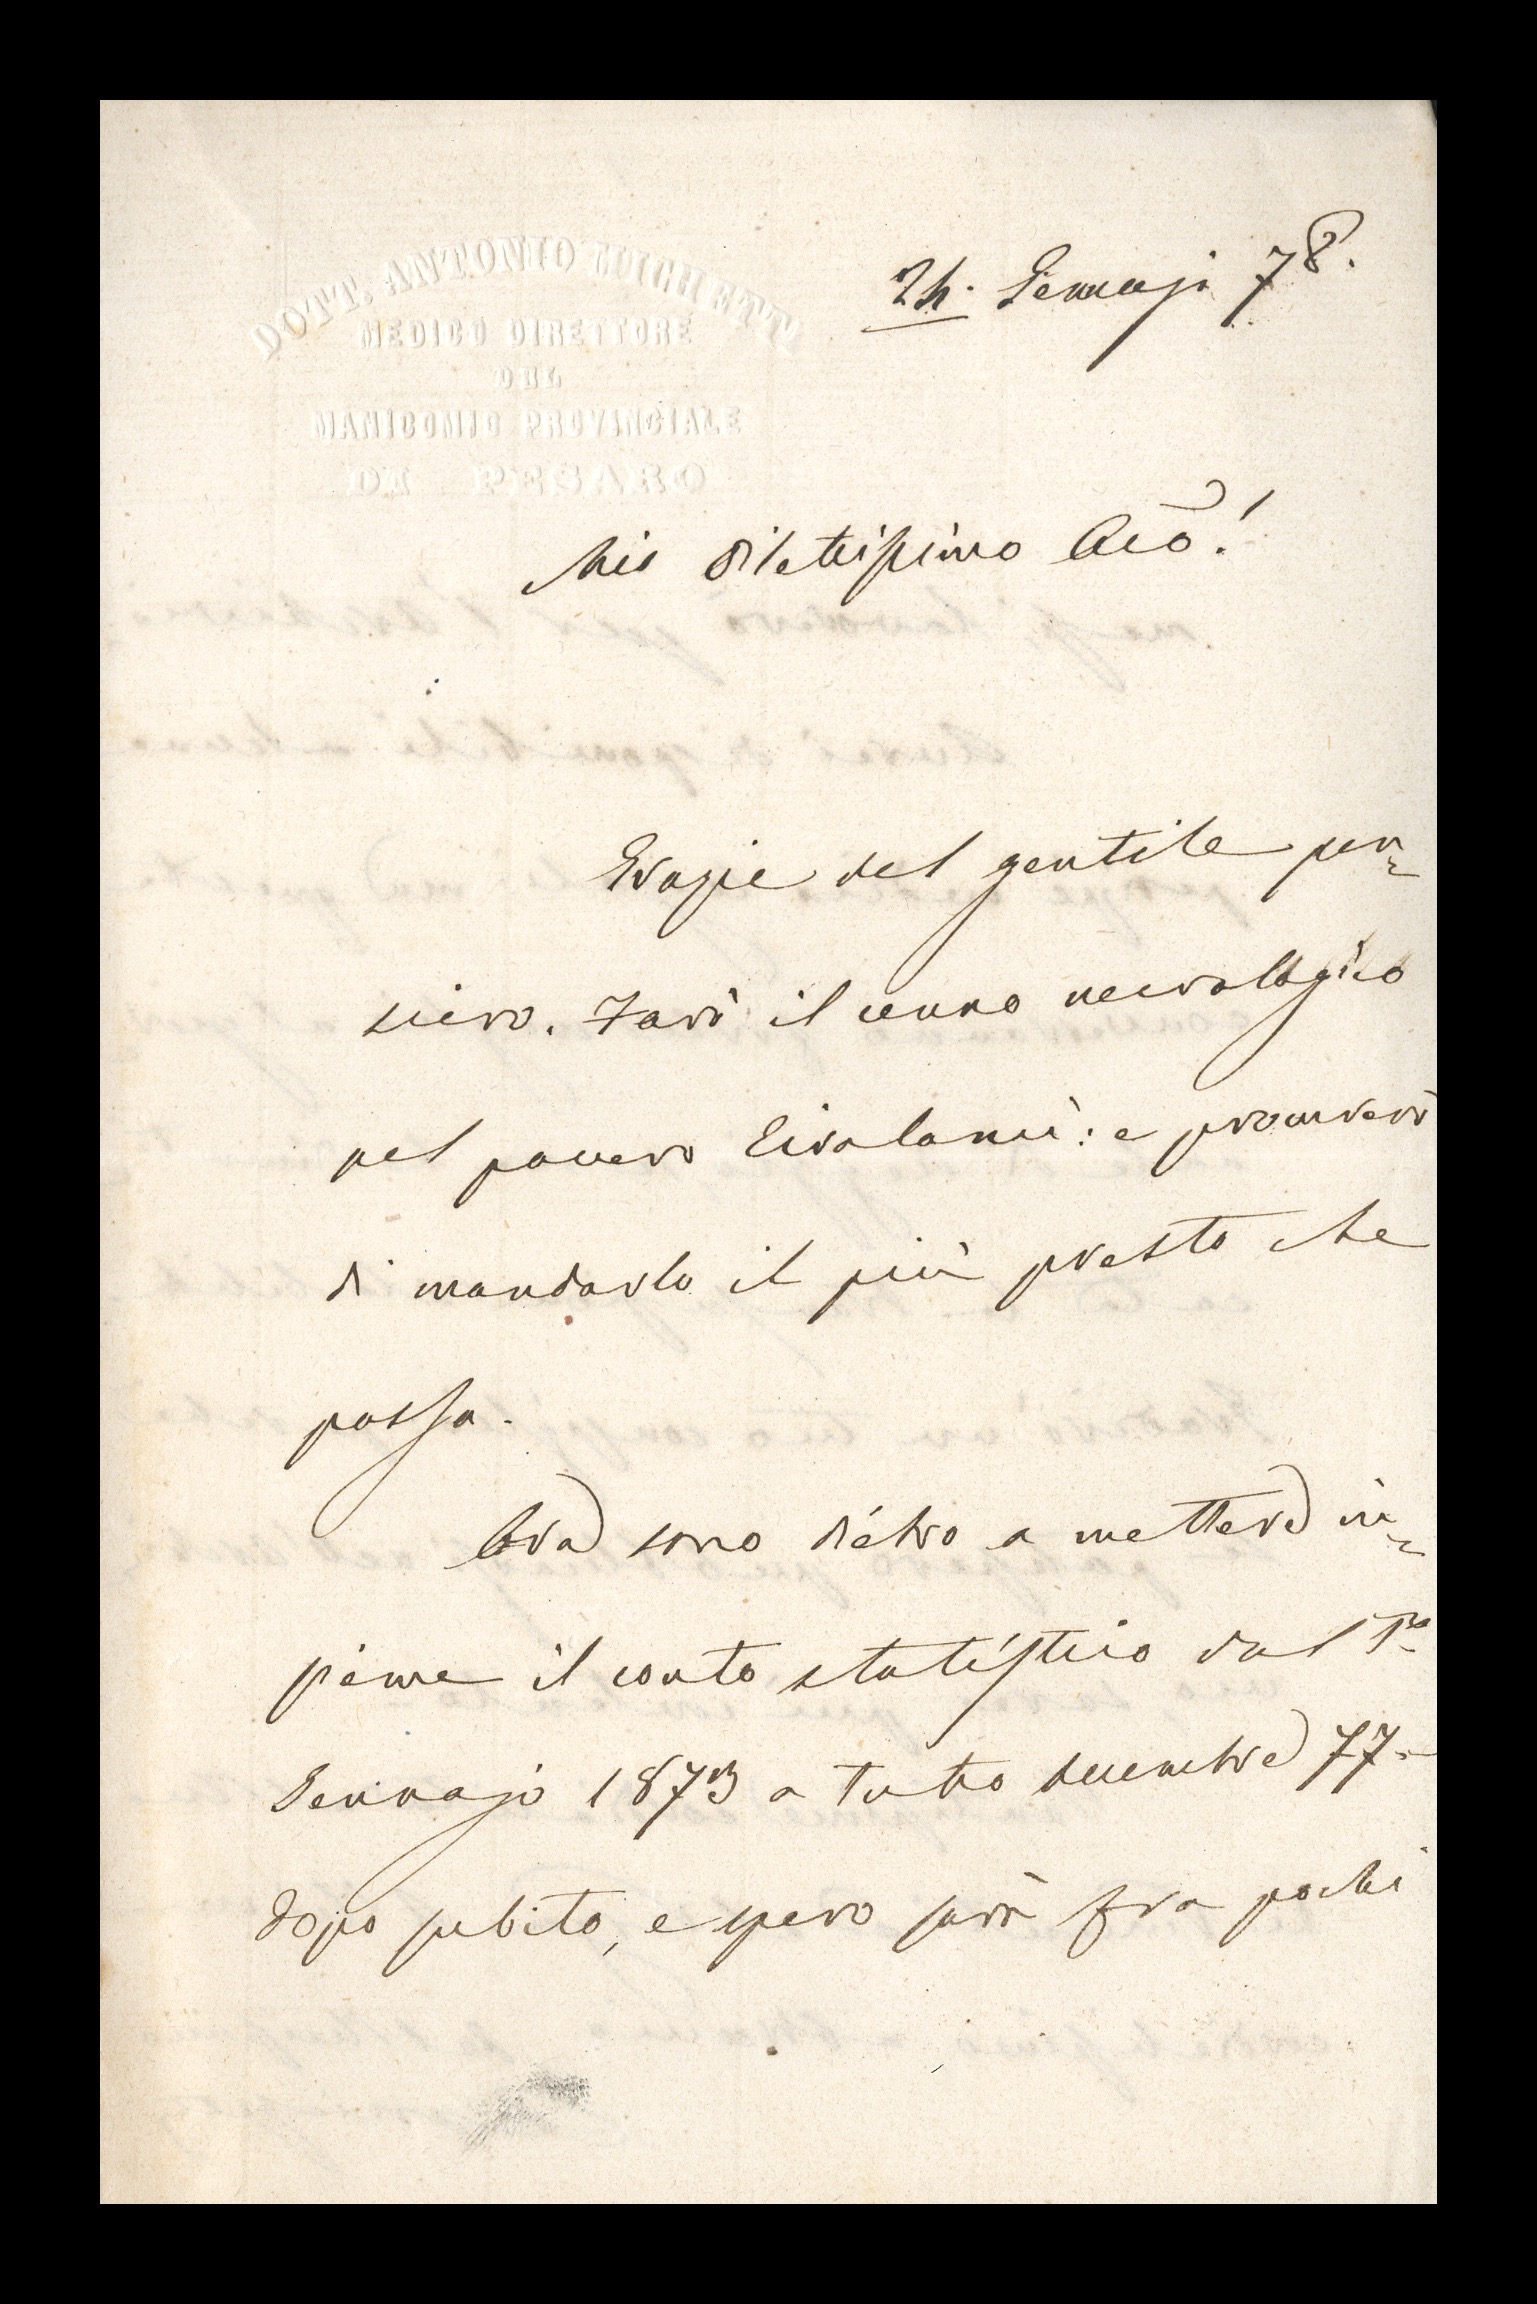 DOTT. ANTONIO MICHETTI
MEDICO DIRETTORE
DEL
MANICOMIO PROVINCIALE
DI PESARO
24. Gennajo 78.
Mio dilettissimo
Grazie del gentile pen=
siero. Farò il cenno necrologico
pel povero Girolami: e procurerò
di mandarlo il più presto che
possa.
Ora sono dietro a mettere in=
sieme il conto statistico dal 1º
Gennajo 1873 a tutto decembre 77.
dopo subito, e spero sarà fra pochi